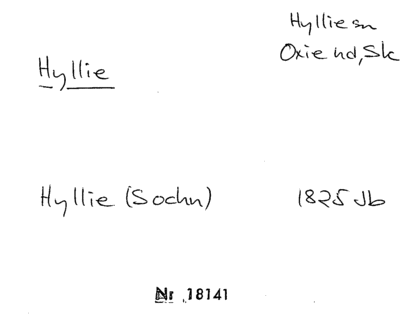 Hyllie sn
Oxie hd, Sk
Hyllie
Hyllie (Sochn) 1825 Jb
Nr 18141